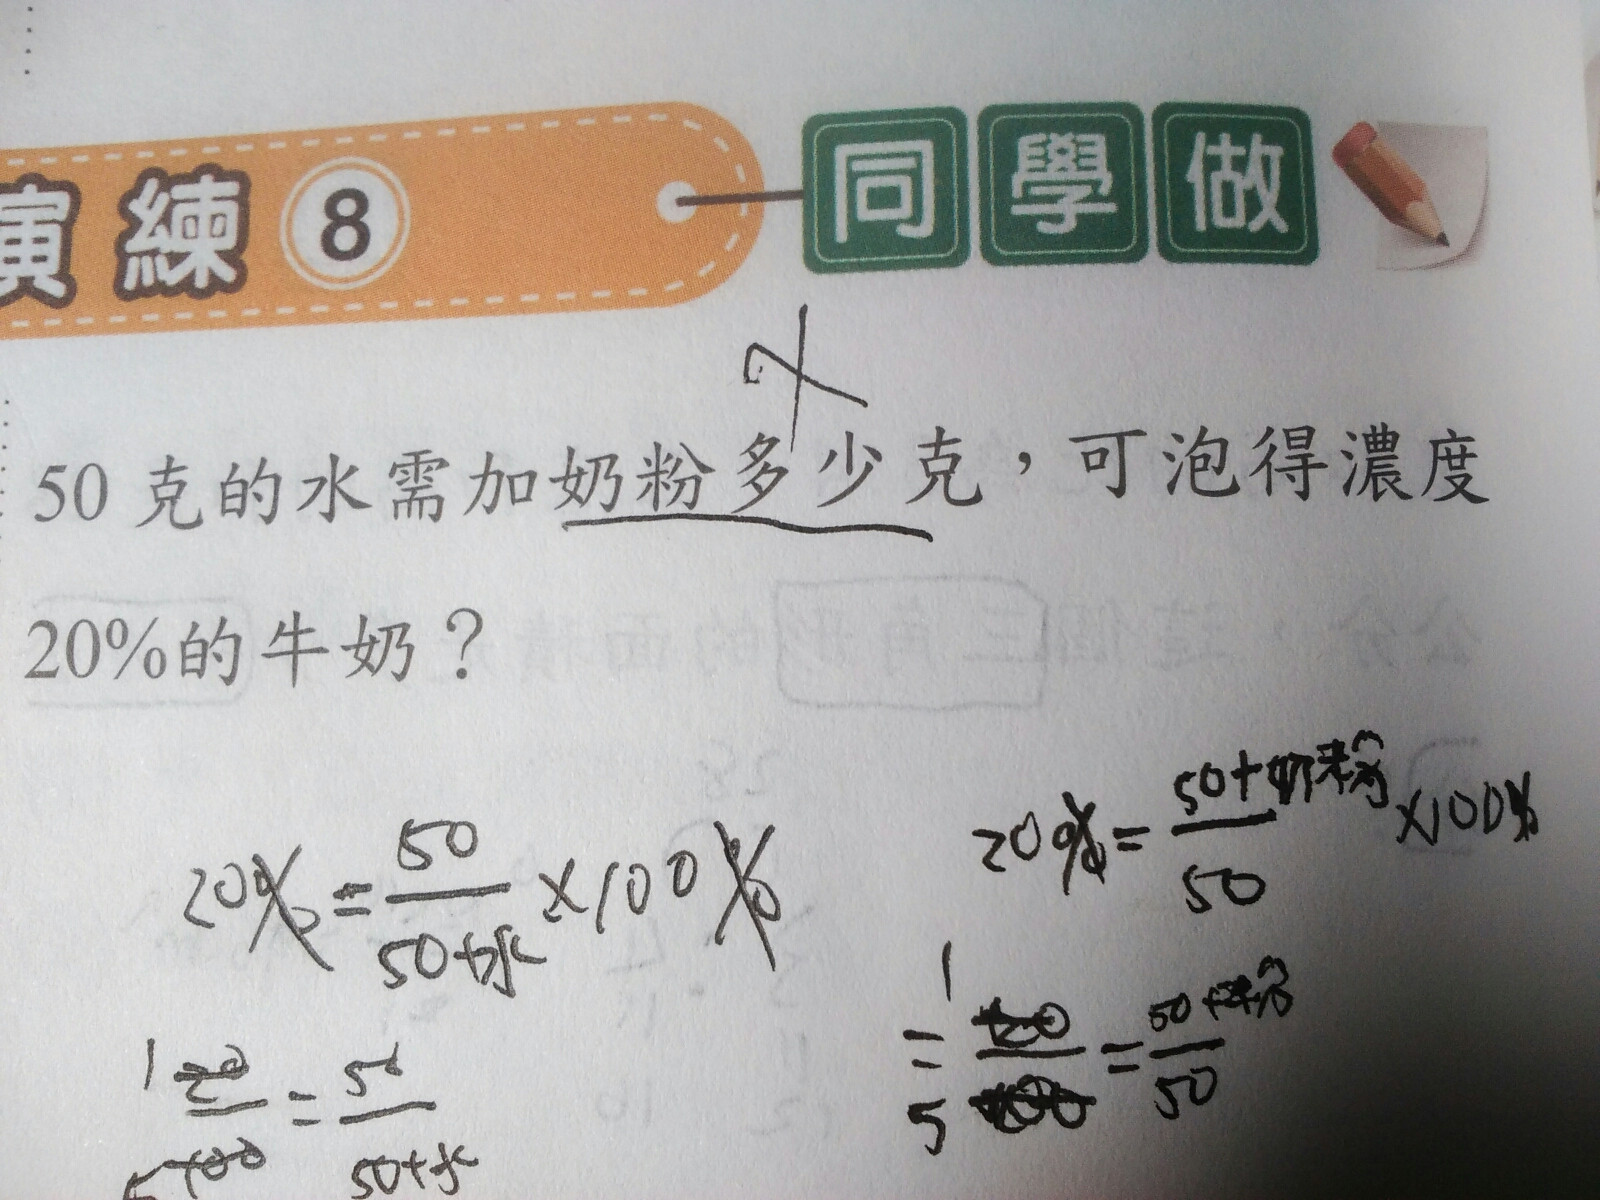 演練 8 同學做
x
50 克的水需加奶粉多少克，可泡得濃度
20%的牛奶？
20% = 50/50+水 ×100%
20% = 50+奶粉/50 ×100%
1 20/5 100 = 50/50+水
= 1/5 100 = 50+粉/50